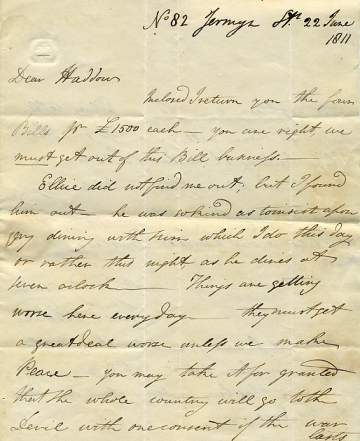 No 82 Jermyn St. 22 June
1811
Dear Haddow
Inclosed I return you the four
Bills for £1500 each - you are right, we
must get out of this Bill business.
Ellice did not find me out; but I found
him out - he was so kind as to insist upon
my dining with him which I do this day
or rather this night, as he dines at
seven oclock - Things are getting
worse here every day - they must get
a great deal worse unless we make
Peace - you may take it for granted
that the whole country will go to the
Devil with one consent if the war
lasts